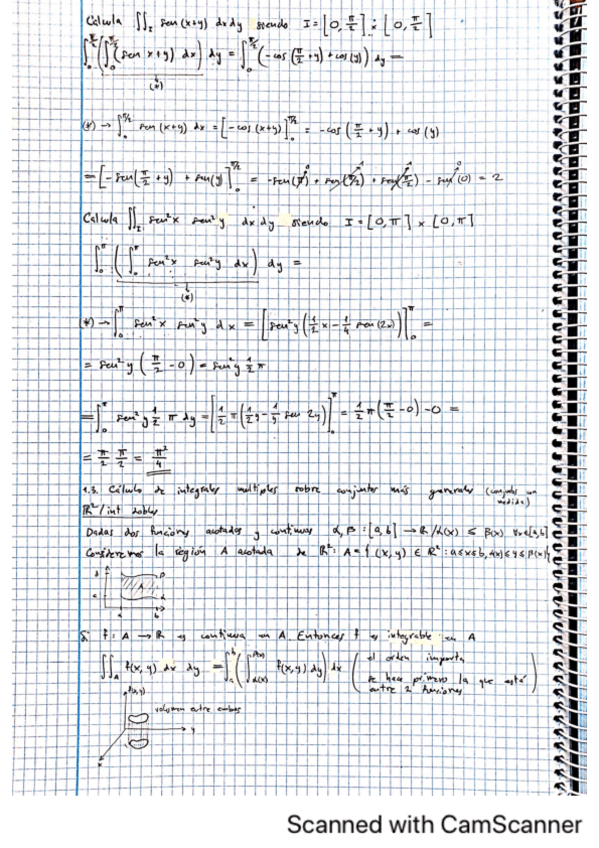 Calcula ∬_I sen (x+y) dx dy siendo I = [0, π/2] × [0, π/2]
∫_0^{π/2} (∫_0^{π/2} (sen x+y) dx) dy = ∫_0^{π/2} (-cos (π/2 + y) + cos (y)) dy =
(*)
(*) → ∫_0^{π/2} sen (x+y) dx = [-cos (x+y)]_0^{π/2} = -cos (π/2 + y) + cos (y)
= [-sen (π/2 + y) + sen (y)]_0^{π/2} = -sen (π) + sen (π/2) + sen (π/2) - sen (0) = 2
Calcula ∬_I sen²x sen²y dx dy siendo I = [0, π] × [0, π]
∫_0^π (∫_0^π sen²x sen²y dx) dy =
(*)
(*) → ∫_0^π sen²x sen²y dx = [sen²y (1/2 x - 1/4 sen (2x))]_0^π =
= sen²y (π/2 - 0) = sen²y 1/2 π
= ∫_0^π sen²y 1/2 π dy = [1/2 π (1/2 y - 1/4 sen 2y)]_0^π = 1/2 π (π/2 - 0) - 0 =
= π/2 π/2 = π²/4
1.3. Cálculo de integrales multiples sobre conjuntos más generales (conjuntos con medida)
R² / int dobles
Dadas dos funciones acotadas y continuas α, β : [a, b] → R / α(x) ≤ β(x) ∀x∈[a,b]
Consideremos la región A acotada de R²: A = { (x, y) ∈ R² : a≤x≤b, α(x)≤y≤β(x)}
A
a b
Si f: A → R es continua en A. Entonces f es integrable en A
∬_A f(x, y) dx dy = ∫_a^b (∫_{α(x)}^{β(x)} f(x, y) dy) dx (el orden importa
se hace primero la que está
entre 2 funciones)
f(x, y)
volumen entre ambas
y
x
Scanned with CamScanner